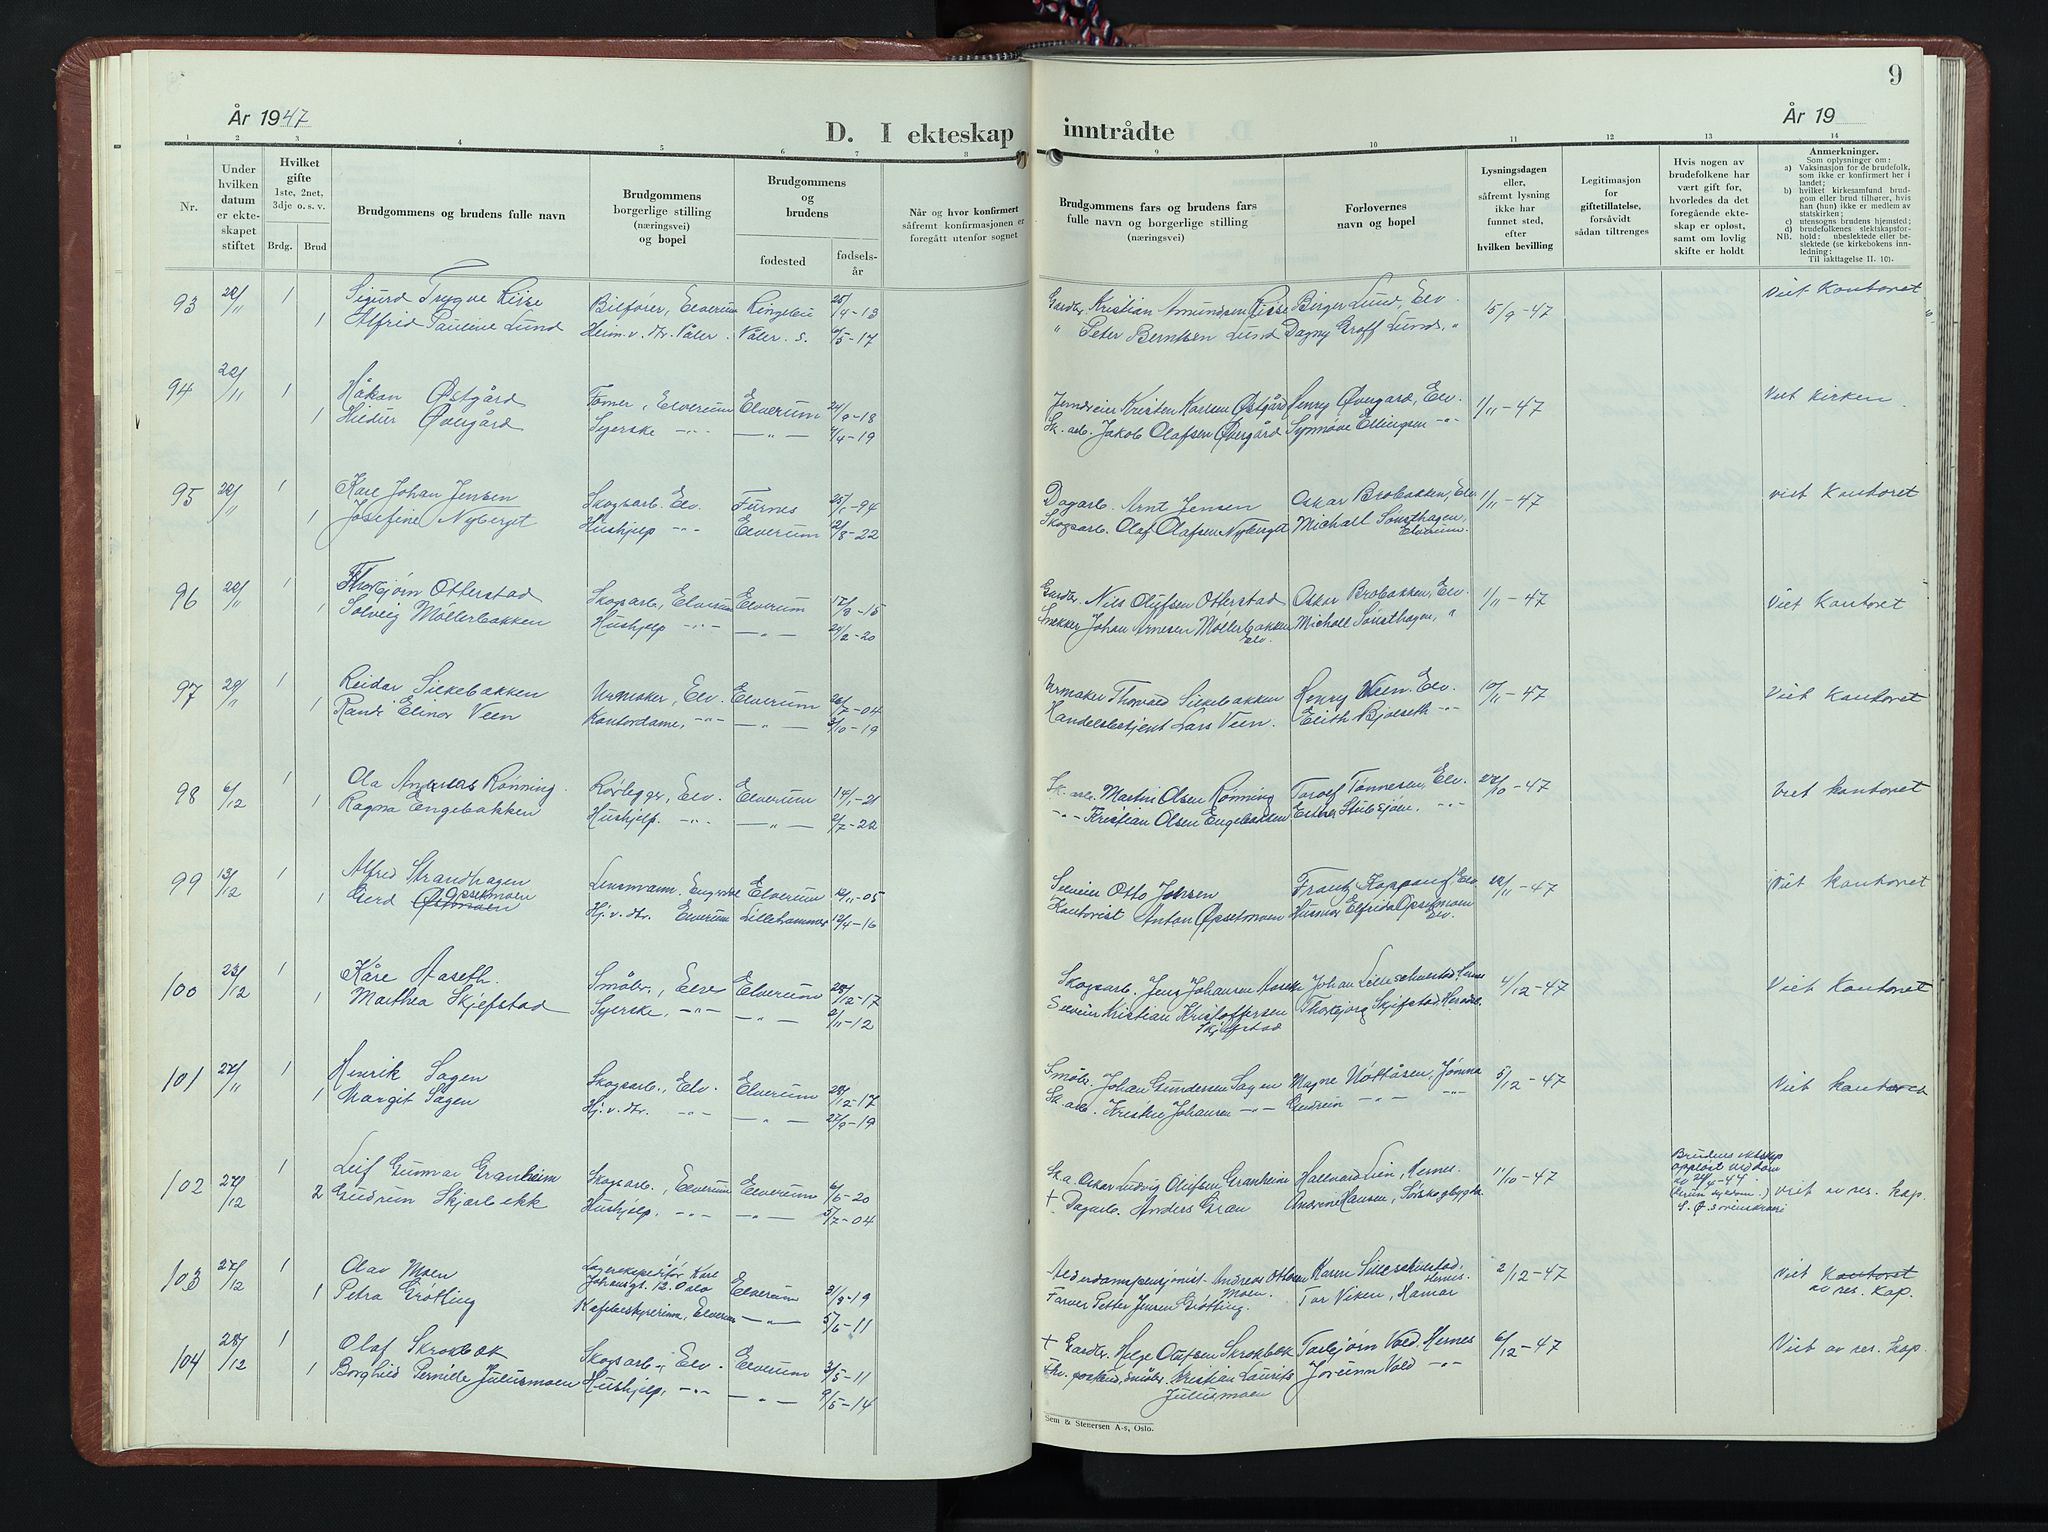 9
År 1947
År 19
D. I ekteskap inntrådte
1 2 3 4 5 6 7 8 9 10 11 12 13 14
Nr.
Under hvilken datum er ekteskapet stiftet
Hvilket gifte 1ste, 2net. 3dje o. s. v.
Brdg. Brud
Brudgommens og brudens fulle navn
Brudgommens borgerlige stilling (næringsvei) og bopel
Brudgommens og brudens
fødested
fødselsår
Når og hvor konfirmert såfremt konfirmasjonen er foregått utenfor sognet
Brudgommens fars og brudens fars fulle navn og borgerlige stilling (næringsvei)
Forlovernes navn og bopel
Lysningsdagen eller, såfremt lysning ikke har funnet sted, efter hvilken bevilling
Legitimasjon for giftetillatelse, forsåvidt sådan tiltrenges
Hvis nogen av brudefolkene har vært gift før, hvorledes da det foregående ekteskap er opløst, samt om lovlig skifte er holdt
Anmerkninger.
Som oplysninger om:
a) Vaksinasjon for de brudefolk, som ikke er konfirmert her i landet;
b) hvilket kirkesamfund brudgom eller brud tilhører, hvis han (hun) ikke er medlem av statskirken;
c) utensogns brudens hjemsted;
d) brudefolkenes slektskapsforhold: ubeslektede eller beslektede (se kirkebokens innledning;
NB. Til iakttagelse II. 10).
93 29/11 1 Sigurd Trygve Risse Bilfører, Elverum Ringebu 25/4-13 Gardbr. Kristian Amundsen Risse Birger Lund, Elv. 15/9-47 Viet kontoret
1 Alfrid Pauline Lund Heim.v. dtr. Våler. Våler. S. 6/5-17 " Peter Berntsen Lund Dagny Groff Lund, "
94 22/11 1 Håkan Østgård Elverum Elverum 24/9-18 Kristen Karlsen Østgård Henry Øvergård, Elv. 1/11-47 Viet kirken.
1 Øvergård Syerske -"- -"- 4/4-19 Sk. arb. Jakob Olafsen Øvergård Synnøve Ellingsen -"-
95 29/11 1 Kåre Johan Jensen Skogsarb. Elv. Furnes 25/1-94 Dagarb. Arnt Jensen Oskar Brobakken, Elv. 1/11-47 viet kontoret
1 Josefine Nyberget Hushjelp -"- Elverum 12/8-22 Skogsarb. Olaf Olafsen Nyberget Michall Sønsthagen, Elverum.
96 29/11 1 Thorbjørn Otterstad Skogsarb., Elverum Elverum 17/9-15 Gardbr. Nils Olufsen Otterstad Oskar Brobakken, Elv. 1/11-47 Viet kontoret
1 Solveig Møllerbakken Hushjelp -"- -"- 20/2-20 Snekker Johan Arnesen Møllerbakken Elv. Michall Sønsthagen, "
97 29/11 1 Reidar Silkebakken Urmaker, Elv. Elverum 26/7-04 Urmaker Thorvald Silkebakken Henry Veen. Elv. 10/11-47 Viet kontoret
1 Randi Elinor Veen Kontordame, -"- -"- 3/10-19 Handelsbetjent Lars Veen. Edith Bjølseth -"-
98 6/12 1 Ola Andreas Rønning Rørlegger, Elv. Elverum 14/1-21 Sk. arb. Martin Olsen Rønning Torolf Tønnesen, Elv. 22/10-47 Viet kontoret
1 Ragna Engebakken Hushjelp. -"- -"- 2/7-22 -"- Kristian Olsen Engebakken Ester Stubsjøen, -"-
99 13/12 1 Alfred Strandhagen Lensmannn. Elverum 10/11-05 Selveier Otto Johsen Frantz Koppang, Elv. 20/11-47 Viet kontoret
1 Gerd Opsetmoen Hj. v. dtr. Elverum Lillehammer 12/4-16 Kontorist Anton Opsetmoen Husmor Elfrida Opsetmoen Elv.
100 23/12 1 Kåre Aaseth. Småbr., Elv Elverum 28/12-17 Skogsarb. Jens Johansen Aaseth Johan Lilleschulstad, Hernes 4/12-47 Viet kontoret
1 Marthea Skjefstad Syerske, -"- -"- 2/11-12 Selveier Kristian Kristoffersen Skjefstad Thorbjørg Skjefstad, Hernes
101 27/11 1 Henrik Sagen Skogsarb., Elv. Elverum 28/12-17 Småbr. Johan Gundersen Sagen Magne Nøttåsen, Jømna 5/12-47 Viet kontoret
1 Margit Sagen Hj. v. dtr. -"- -"- 27/9-19 Sk. arb. Kristian Johansen -"- Gudrun -"- -"-
102 27/12 1 Leif Gunnar Granheim Skogsarb., Elverum Elverum 6/6-20 Sk. a. Oskar Ludvig Olufsen Granheim Hallvard Lien, Hernes. 11/10-47 Brudens ektskap oppløst ved dom av 24/4-44. S. Ø. sorenskriveri viet av res. kap.
2 Gudrun Skjærbekk Hushjelp. -"- -"- 5/7-04 + Dagarb. Anders Græn Andrine Hansen, Sørskogbygda
103 27/12 1 Olav Moen Lagerekspeditør Karl Johansgt. 12. Oslo Elverum 31/8-19 Alderdomspensjonist Andreas Ottosen Moen. Karen Lilleschulstad, Hernes. 2/12-47 Viet kontoret av res. kap.
1 Petra Grøtting Kafébestyrerinne, Elverum -"- 5/6-11 Farver Petter Jensen Grøtting. Tor Viken, Hamar
104 28/12 1 Olaf Skrokbæk Skogsarb., Elv. Elverum 3/5-11 + Gardbr. Helge Olufsen Skrokbæk Torbjørn Vold, Hernes 6/12-47 Viet av res. kap.
1 Borghild Pernille Juliusmoen Hushjelp, -"- -"- 9/5-14 småbr. Kristian Laurits Juliusmoen Jorunn Vold -"-
Sem & Stenersen A-s, Oslo.